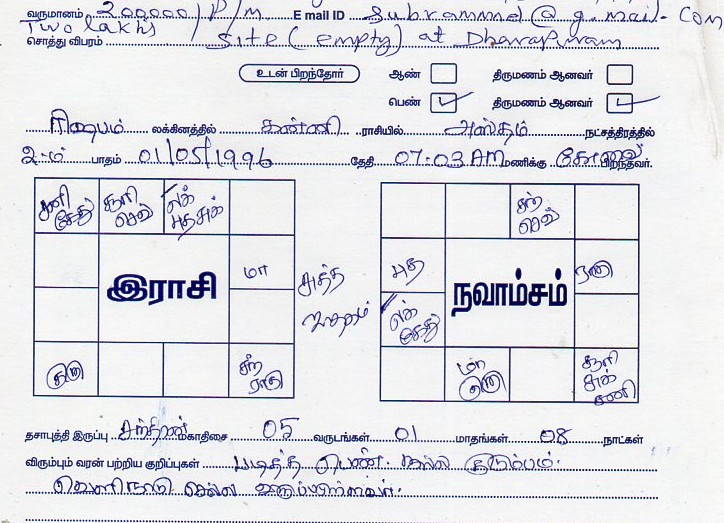 வருமானம் 200000/P/m E mail ID Subramma@g.mail.com
Two lakhs
சொத்து விபரம் Site (empty) at Dharapuram
உடன் பிறந்தோர் ஆண் திருமணம் ஆனவர்
பெண் ✓ திருமணம் ஆனவர் ✓
ரிஷபம் லக்கினத்தில் கன்னி ராசியில் அஸ்தம் நட்சத்திரத்தில்
2-ம் பாதம் 01/05/1996 தேதி 07:03 AM மணிக்கு கோவை பிறந்தவர்.
சனி கேது சூரி செவ் லக் புத சுக்
மா
இராசி
குரு சந் ராகு
சுத்த ஜாதகம்
சந் செவ்
புத சனி
நவாம்சம்
லக் கேது
மா குரு சூரி சுக் சனி
தசாபுத்தி இருப்பு சந்திரன் மகாதிசை 05 வருடங்கள் 01 மாதங்கள் 08 நாட்கள்
விரும்பும் வரன் பற்றிய குறிப்புகள் படித்த பெண். நல்ல குடும்பம்.
வெளிநாடு செல்ல